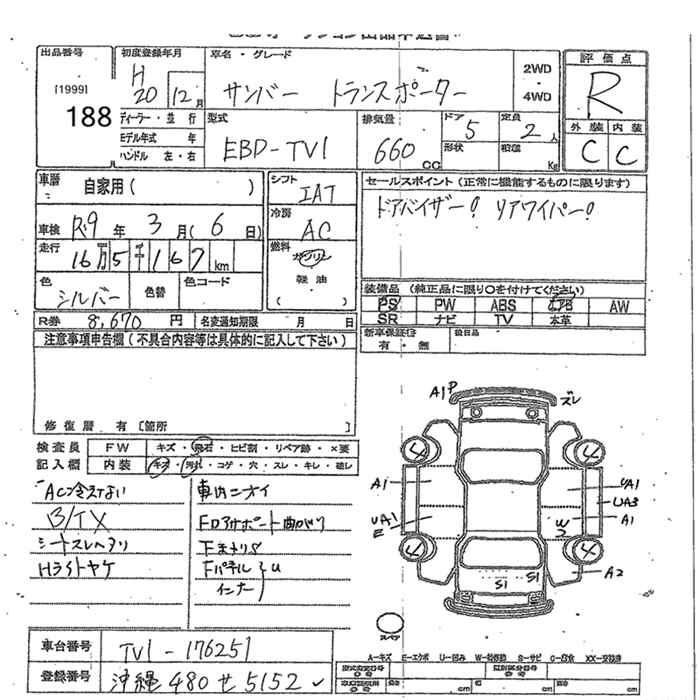 出品番号
[1999]
188
初度登録年月
H
20 12月
車名・グレード
サンバー トランスポーター
2WD
・
4WD
評価点
R
外装 内装
C C
ディーラー・並行
モデル年式 年
ハンドル 左・右
型式
EBD-TV1
排気量
660
CC
ドア
5
定員
2人
形状
積載
Kg
車歴
自家用( )
シフト
IAT
車検 R.9年 3月(6日)
冷房
AC
走行
16万5千167km
燃料
ガソリン
軽油
( )
色
シルバー
色替
色コード
R券 8,670円
名変通知期限 月 日
セールスポイント(正常に機能するものに限ります)
ドアバイザー! リアワイパー!
装備品 (純正品に限り○を付けてください)
PS PW ABS エアB AW
SR ナビ TV 本革
新車保証書
有・無
後日品
注意事項申告欄(不具合内容等は具体的に記入して下さい)
修復歴 有〔箇所
検査員
記入欄
FW キズ・飛石・ヒビ割・リペア跡・×要
内装 キズ・汚れ・コゲ・穴・スレ・キレ・破レ
AC冷えない
B/TX
シートスレヘタリ
Hライトヤケ
車内ニオイ
Fロアサポート曲がり
Fパネル
インナー
U
A1 P
ズレ
4
4
A1
UA1
E
UA1
UA3
A1
W
2
4
4
A2
S1
S1
スペア
車台番号 TV1-176251
登録番号 沖縄480せ5152
A-キズ E-エクボ U-凹み S-サビ C-腐食 XX-交換済
cm
cm
cm